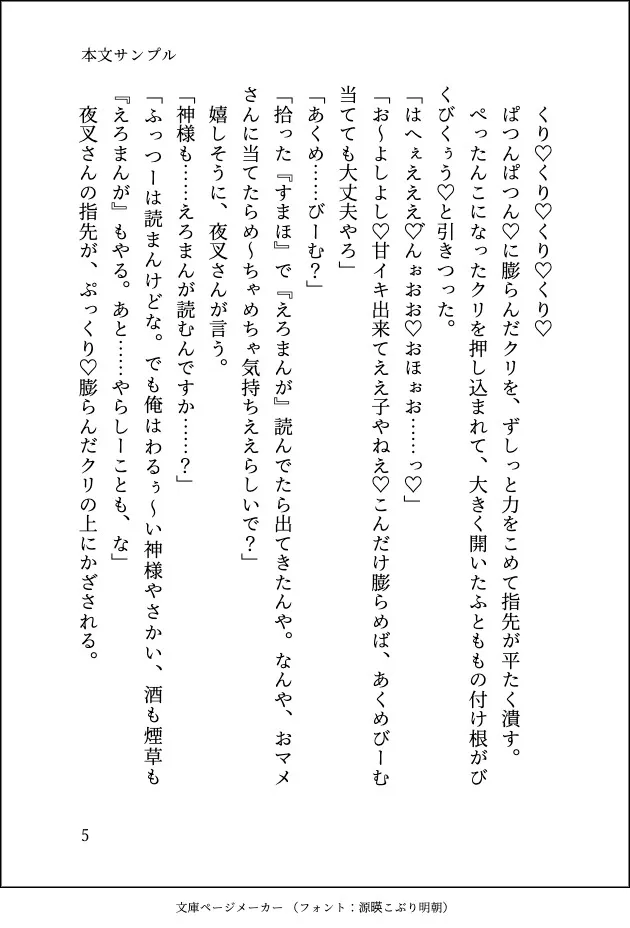 本文サンプル
くり♡くり♡くり♡くり♡
ぱつんぱつん♡に膨らんだクリを、ずしっと力をこめて指先が平たく潰す。
ぺったんこになったクリを押し込まれて、大きく開いたふとももの付け根がび
くびくぅう♡と引きつった。
「はへぇえええ♡゙んぉおお♡おほぉお……っ♡」
「お〜よしよし♡甘イキ出来てええ子やねえ♡こんだけ膨らめば、あくめびーむ
当てても大丈夫やろ」
「あくめ……びーむ？」
「拾った『すまほ』で『えろまんが』読んでたら出てきたんや。なんや、おマメ
さんに当てたらめ〜ちゃめちゃ気持ちええらしいで？」
嬉しそうに、夜叉さんが言う。
「神様も……えろまんが読むんですか……？」
「ふっつーは読まんけどな。でも俺はわるぅ〜い神様やさかい、酒も煙草も
『えろまんが』もやる。あと……やらしーことも、な」
夜叉さんの指先が、ぷっくり♡膨らんだクリの上にかざされる。
5
文庫ページメーカー （フォント：源暎こぶり明朝）